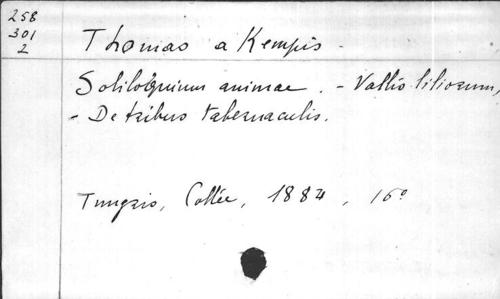 258
301
2
Thomas a Kempis -
Soliloquium animae. - Vallis liliorum,
- De tribus tabernaculis.
Tungris, Collée, 1884, 16°